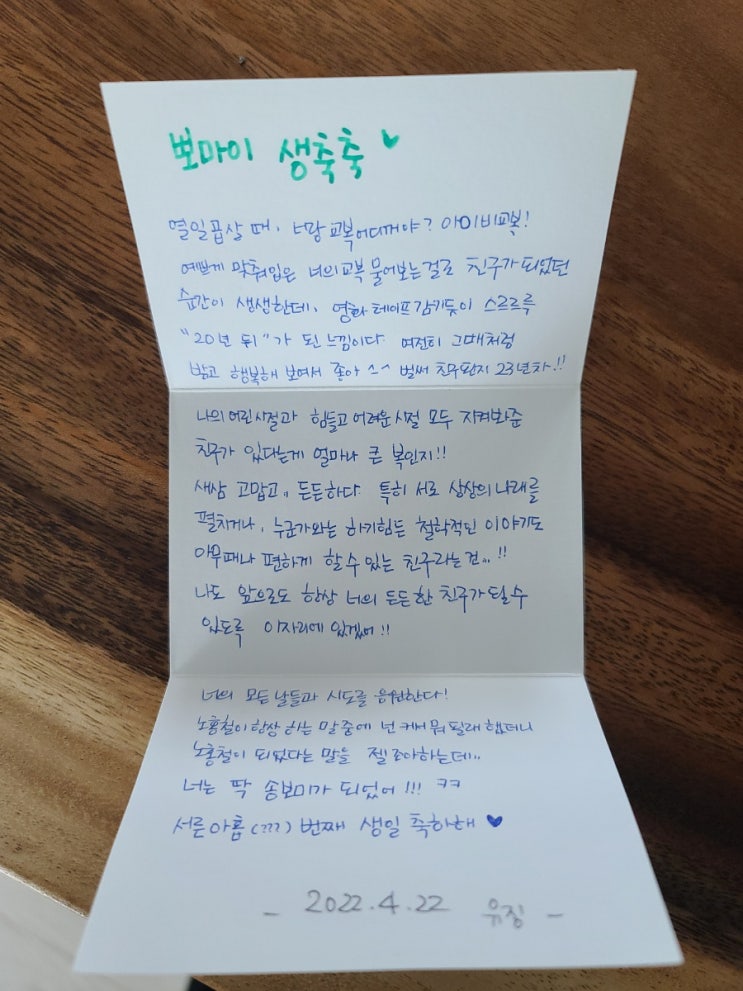 뽀마이 생축축
열일곱살 때, 너랑 교복어디꺼야? 아이비교복!
예쁘게 맞춰입은 너의교복 물어보는걸로 친구가되었던
순간이 생생한데, 영화 테이프감기듯이 스르르륵
"20년 뒤"가 된 느낌이다. 여전히 그때처럼
밝고 행복해 보여서 좋아 ^-^ 벌써 친구된지 23년차!!
나의 어린시절과 힘들고 어려운시절 모두 지켜봐준
친구가 있다는게 얼마나 큰 복인지!!
새삼 고맙고.. 든든하다. 특히 서로 상상의 나래를
펼치거나, 누군가와는 하기힘든 철학적인 이야기도
아무때나 편하게 할수있는 친구라는건...!!
나도 앞으로도 항상 너의 든든한 친구가 될수
있도록 이자리에 있겠어!!
너의 모든 날들과 시도를 응원한다!
노홍철이 항상 하는 말 중에 넌 커서 뭐 될래 했더니
노홍철이 되었다는 말을 젤 좋아하는데..
너는 딱 송보미가 되었어!!! ㅋㅋ
서른아홉(???) 번째 생일 축하해 ♥
- 2022.4.22 유징 -